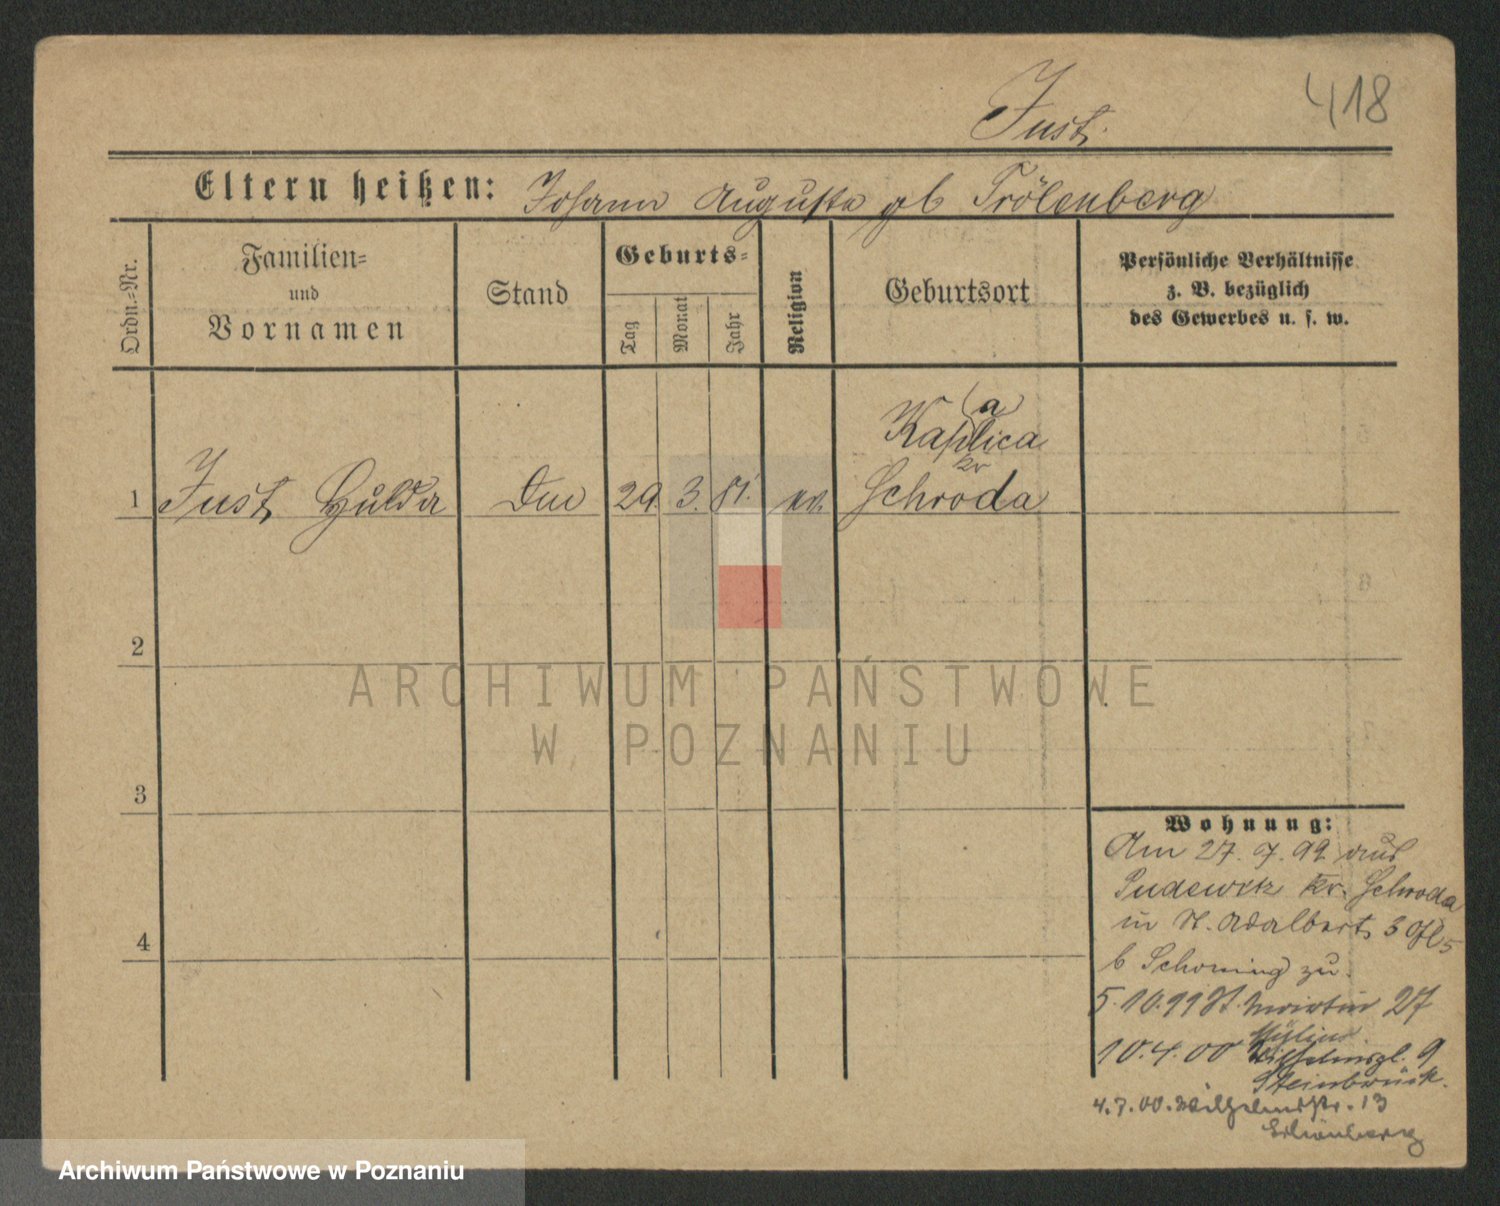 418
Just.
Eltern heißen: Johann Auguste gb Trölenberg
Ordn.-Nr.
Familien-
und
Vornamen
Stand
Geburts-
Tag
Monat
Jahr
Religion
Geburtsort
Persönliche Verhältnisse
z. B. bezüglich
des Gewerbes u. s. w.
(a)
Kaplica
kr
1 Just Hulda 29. 3. 81. ev. Schroda
2
3
4
Wohnung:
Am 27. 7. 99 aus
Pudewitz kr. Schroda
in St. Adalbert 3
b Schoning zu.
5.10.99 St. Martin 27
10.4.00 Wilhelmspl. 9
Steinbrück.
4.7.00. Wilhelmstr. 13
Schönberg
ARCHIWUM PAŃSTWOWE
W POZNANIU
Archiwum Państwowe w Poznaniu